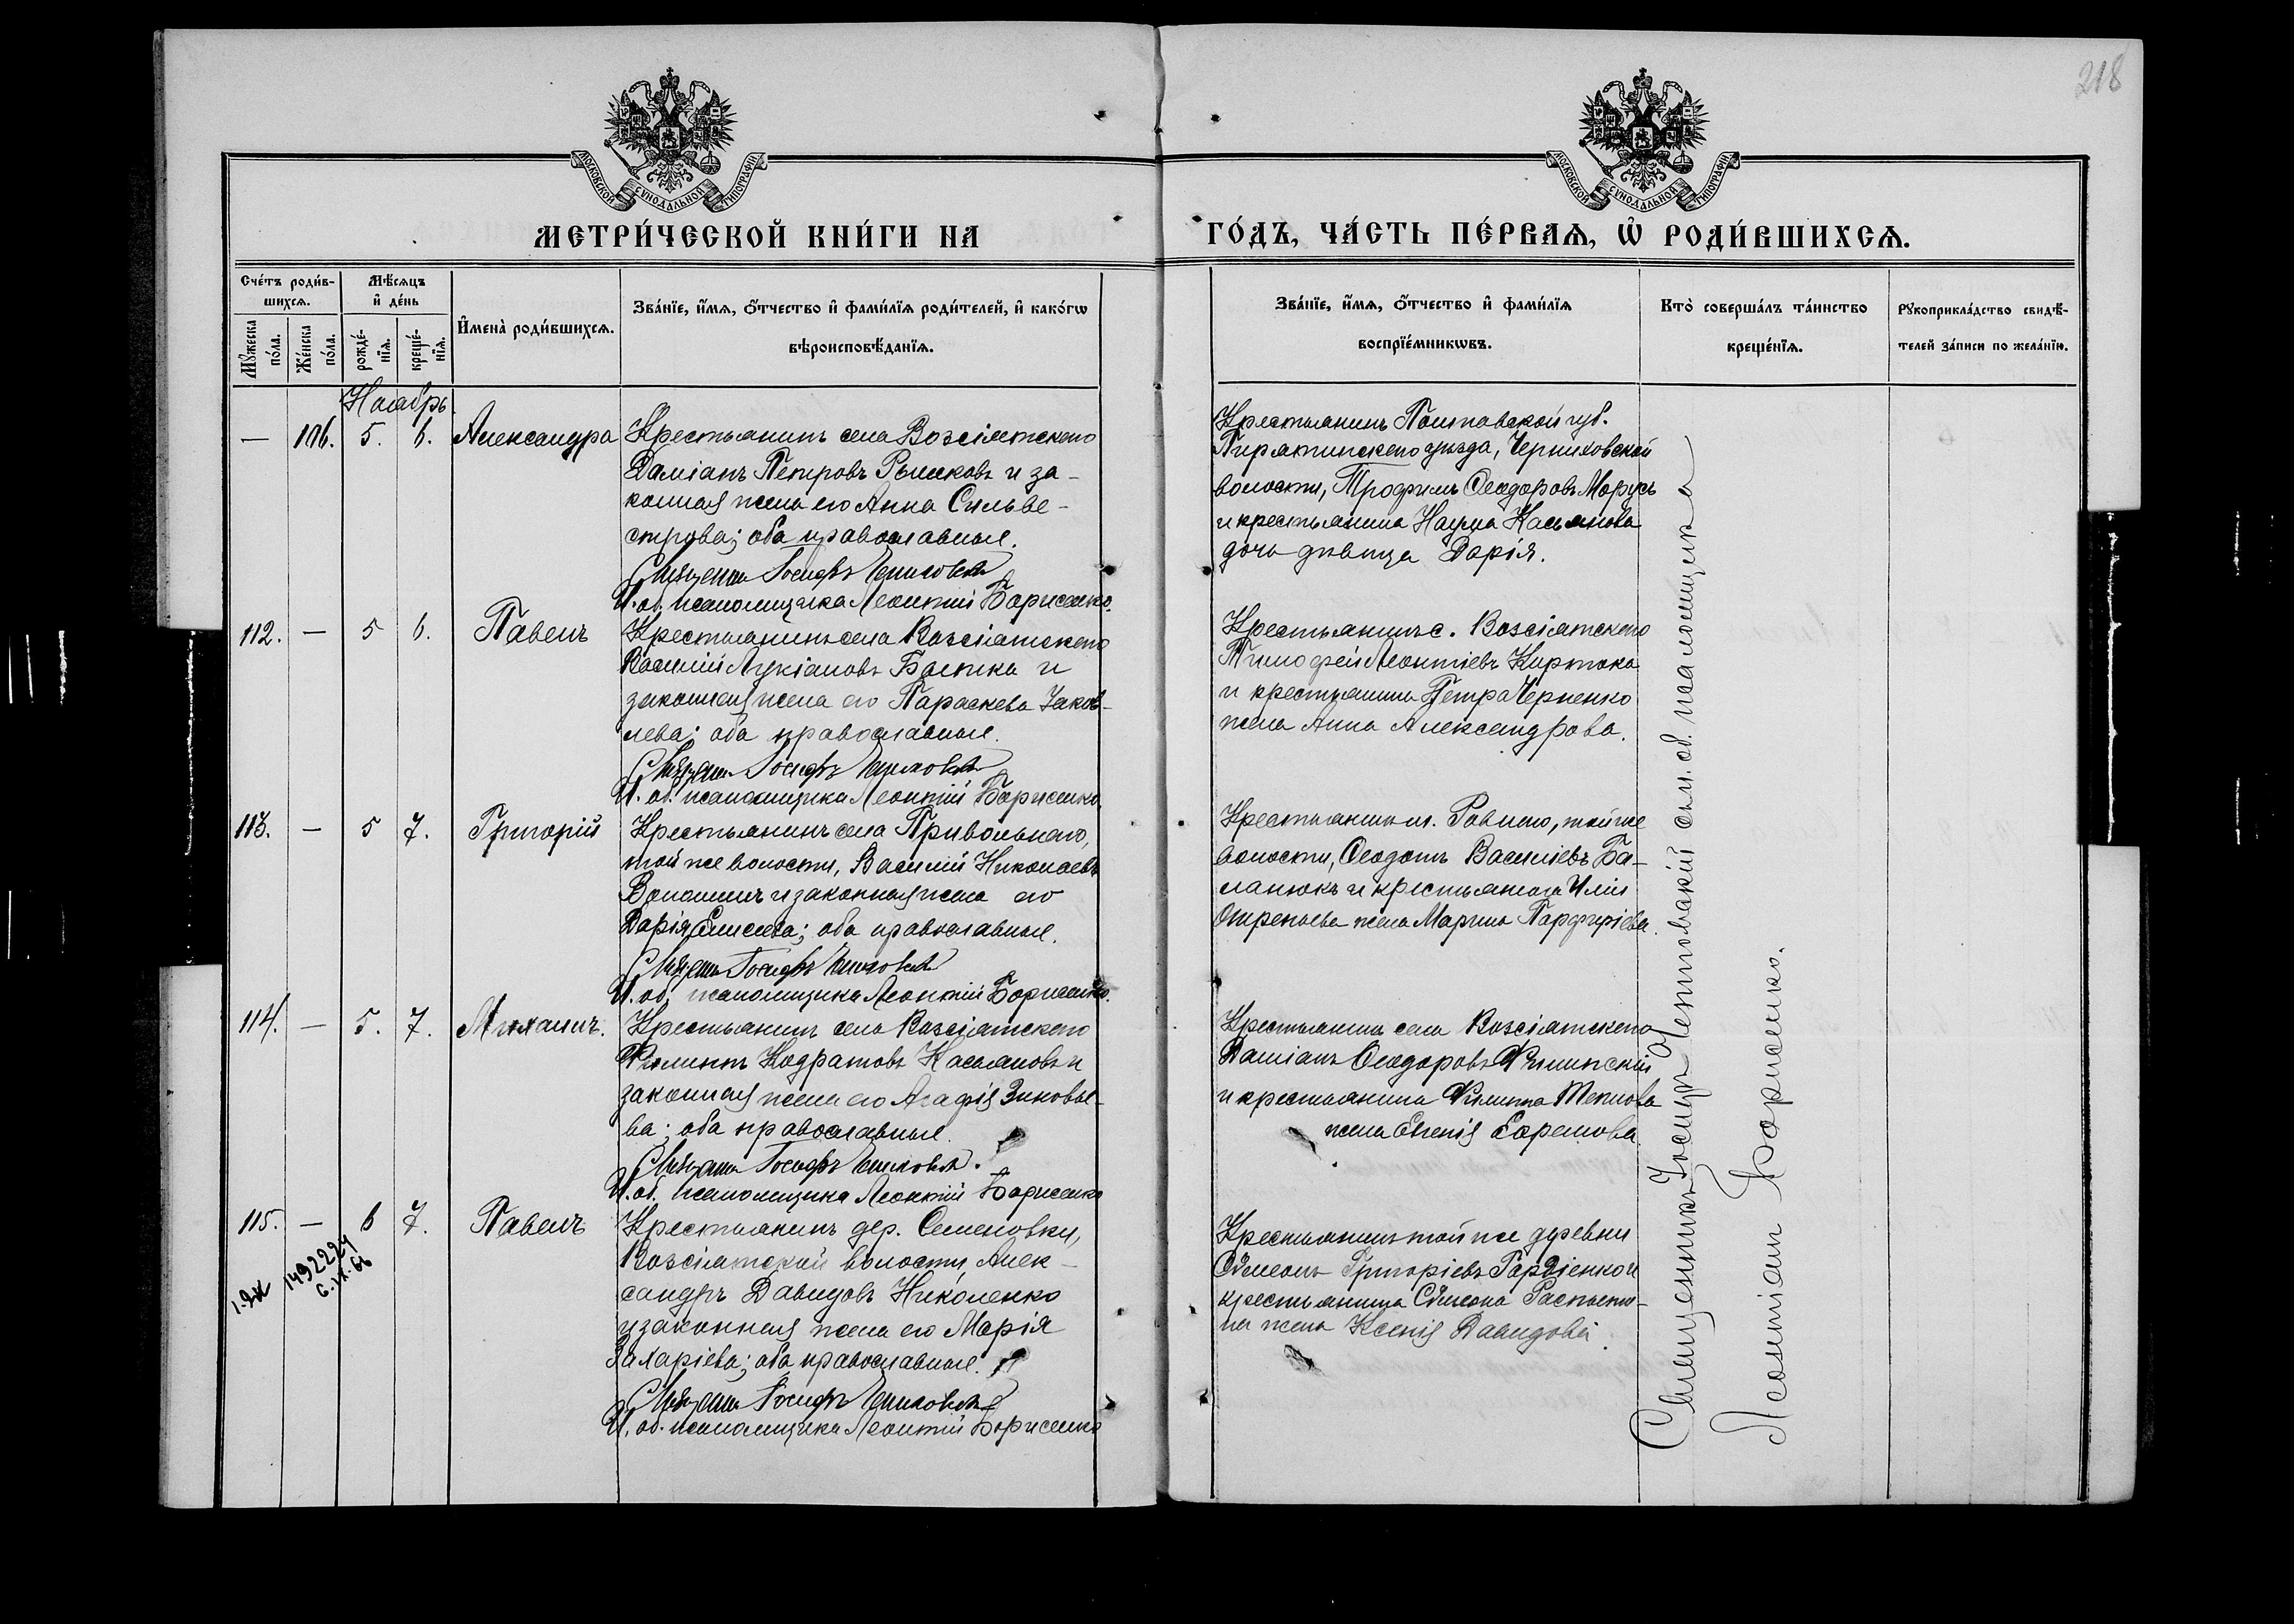 218
МОСКОВСКОЙ СѴНОДАЛЬНОЙ ТИПОГРАФІИ
МОСКОВСКОЙ СѴНОДАЛЬНОЙ ТИПОГРАФІИ
МЕТРИ́ЧЕСКОЙ КНИ́ГИ НА
ГО́ДЪ, ЧА́СТЬ ПЕ́РВАѦ, Ѡ҆ РОДИ́ВШИХСѦ.
Сче́тъ роди́в-
шихсѧ.
Мꙋ́жеска
по́ла.
Же́нска
по́ла.
Мѣ́сѧцъ
и҆ де́нь
рожде́-
нїѧ.
креще́-
нїѧ.
И҆мена̀ роди́вшихсѧ.
Зва́нїе, и҆́мѧ, ѻ҆́тчество и҆ фами́лїѧ роди́телей, и҆ како́гѡ
вѣроисповѣ́данїѧ.
Зва́нїе, и҆́мѧ, ѻ҆́тчество и҆ фами́лїѧ
воспрїе́мникѡвъ.
Кто̀ соверша́лъ та́инство
креще́нїѧ.
Рꙋкоприкла́дство свидѣ́-
телей за́писи по жела́нїю.
Ноябрь.
— 106. 5. 6. Александра
Крестьянинъ села Возсіятскаго
Даміанъ Петровъ Рышковъ и за-
конная жена его Анна Сильве-
строва; оба православные.
Священникъ Іосифъ
И. об. псаломщика Леонтій Борисенко.
Крестьянинъ Полтавской губ.
Пирятинскаго уѣзда, Черняховской
волости, Трофимъ Ѳеодоровъ Марусь
и крестьянина Наума Касьянова
дочь дѣвица Дарія.
112. — 5 6. Павелъ
Крестьянинъ села Возсіятскаго
Василій Лукіановъ Балыка и
законная жена его Параскева Іаков-
лева; оба православные.
Священникъ Іосифъ
И. об. псаломщика Леонтій Борисенко.
Крестьянинъ с. Возсіятскаго
Тимофей Леонтіевъ Киртока
и крестьянина Петра Черненко
жена Анна Александрова.
113. — 5 7. Григорій
Крестьянинъ села Привольнаго,
той же волости, Василій Николаевъ
Волошинъ и законная жена его
Дарія Елисеева; оба православные.
Священникъ Іосифъ
И. об. псаломщика Леонтій Борисенко.
Крестьянинъ м. Ровнаго, той же
волости, Ѳеодотъ Василіевъ Ба-
ланюкъ и крестьянина Иліи
Отрепьева жена Марина Парфиріева.
114. — 5. 7. Михаилъ.
Крестьянинъ села Возсіятскаго
Филиппъ Кодратовъ Касьяновъ и
законная жена его Агафія Зиновье-
ва; оба православные.
Священникъ Іосифъ
И. об. псаломщика Леонтій Борисенко
Крестьянинъ села Возсіятскаго
Даміанъ Ѳеодоровъ Филипскій
и крестьянина Филиппа Теплова
жена Евгенія Ефремова.
115. — 6 7. Павелъ
Крестьянинъ дер. Семеновки,
Возсіятской волости, Алек-
сандръ Давидовъ Николенко
и законная жена его Марія
Захаріева; оба православные.
Священникъ Іосифъ
И. об. псаломщика Леонтій Борисенко
Крестьянинъ той же деревни
Сѵмеонъ Григоріевъ Гордіенко и
крестьянина Сѵмеона
жена Ксенія Давидова.
1492224
6.IX.66
Священникъ Іосифъ и. об. псаломщика
Леонтіан Борисенко.